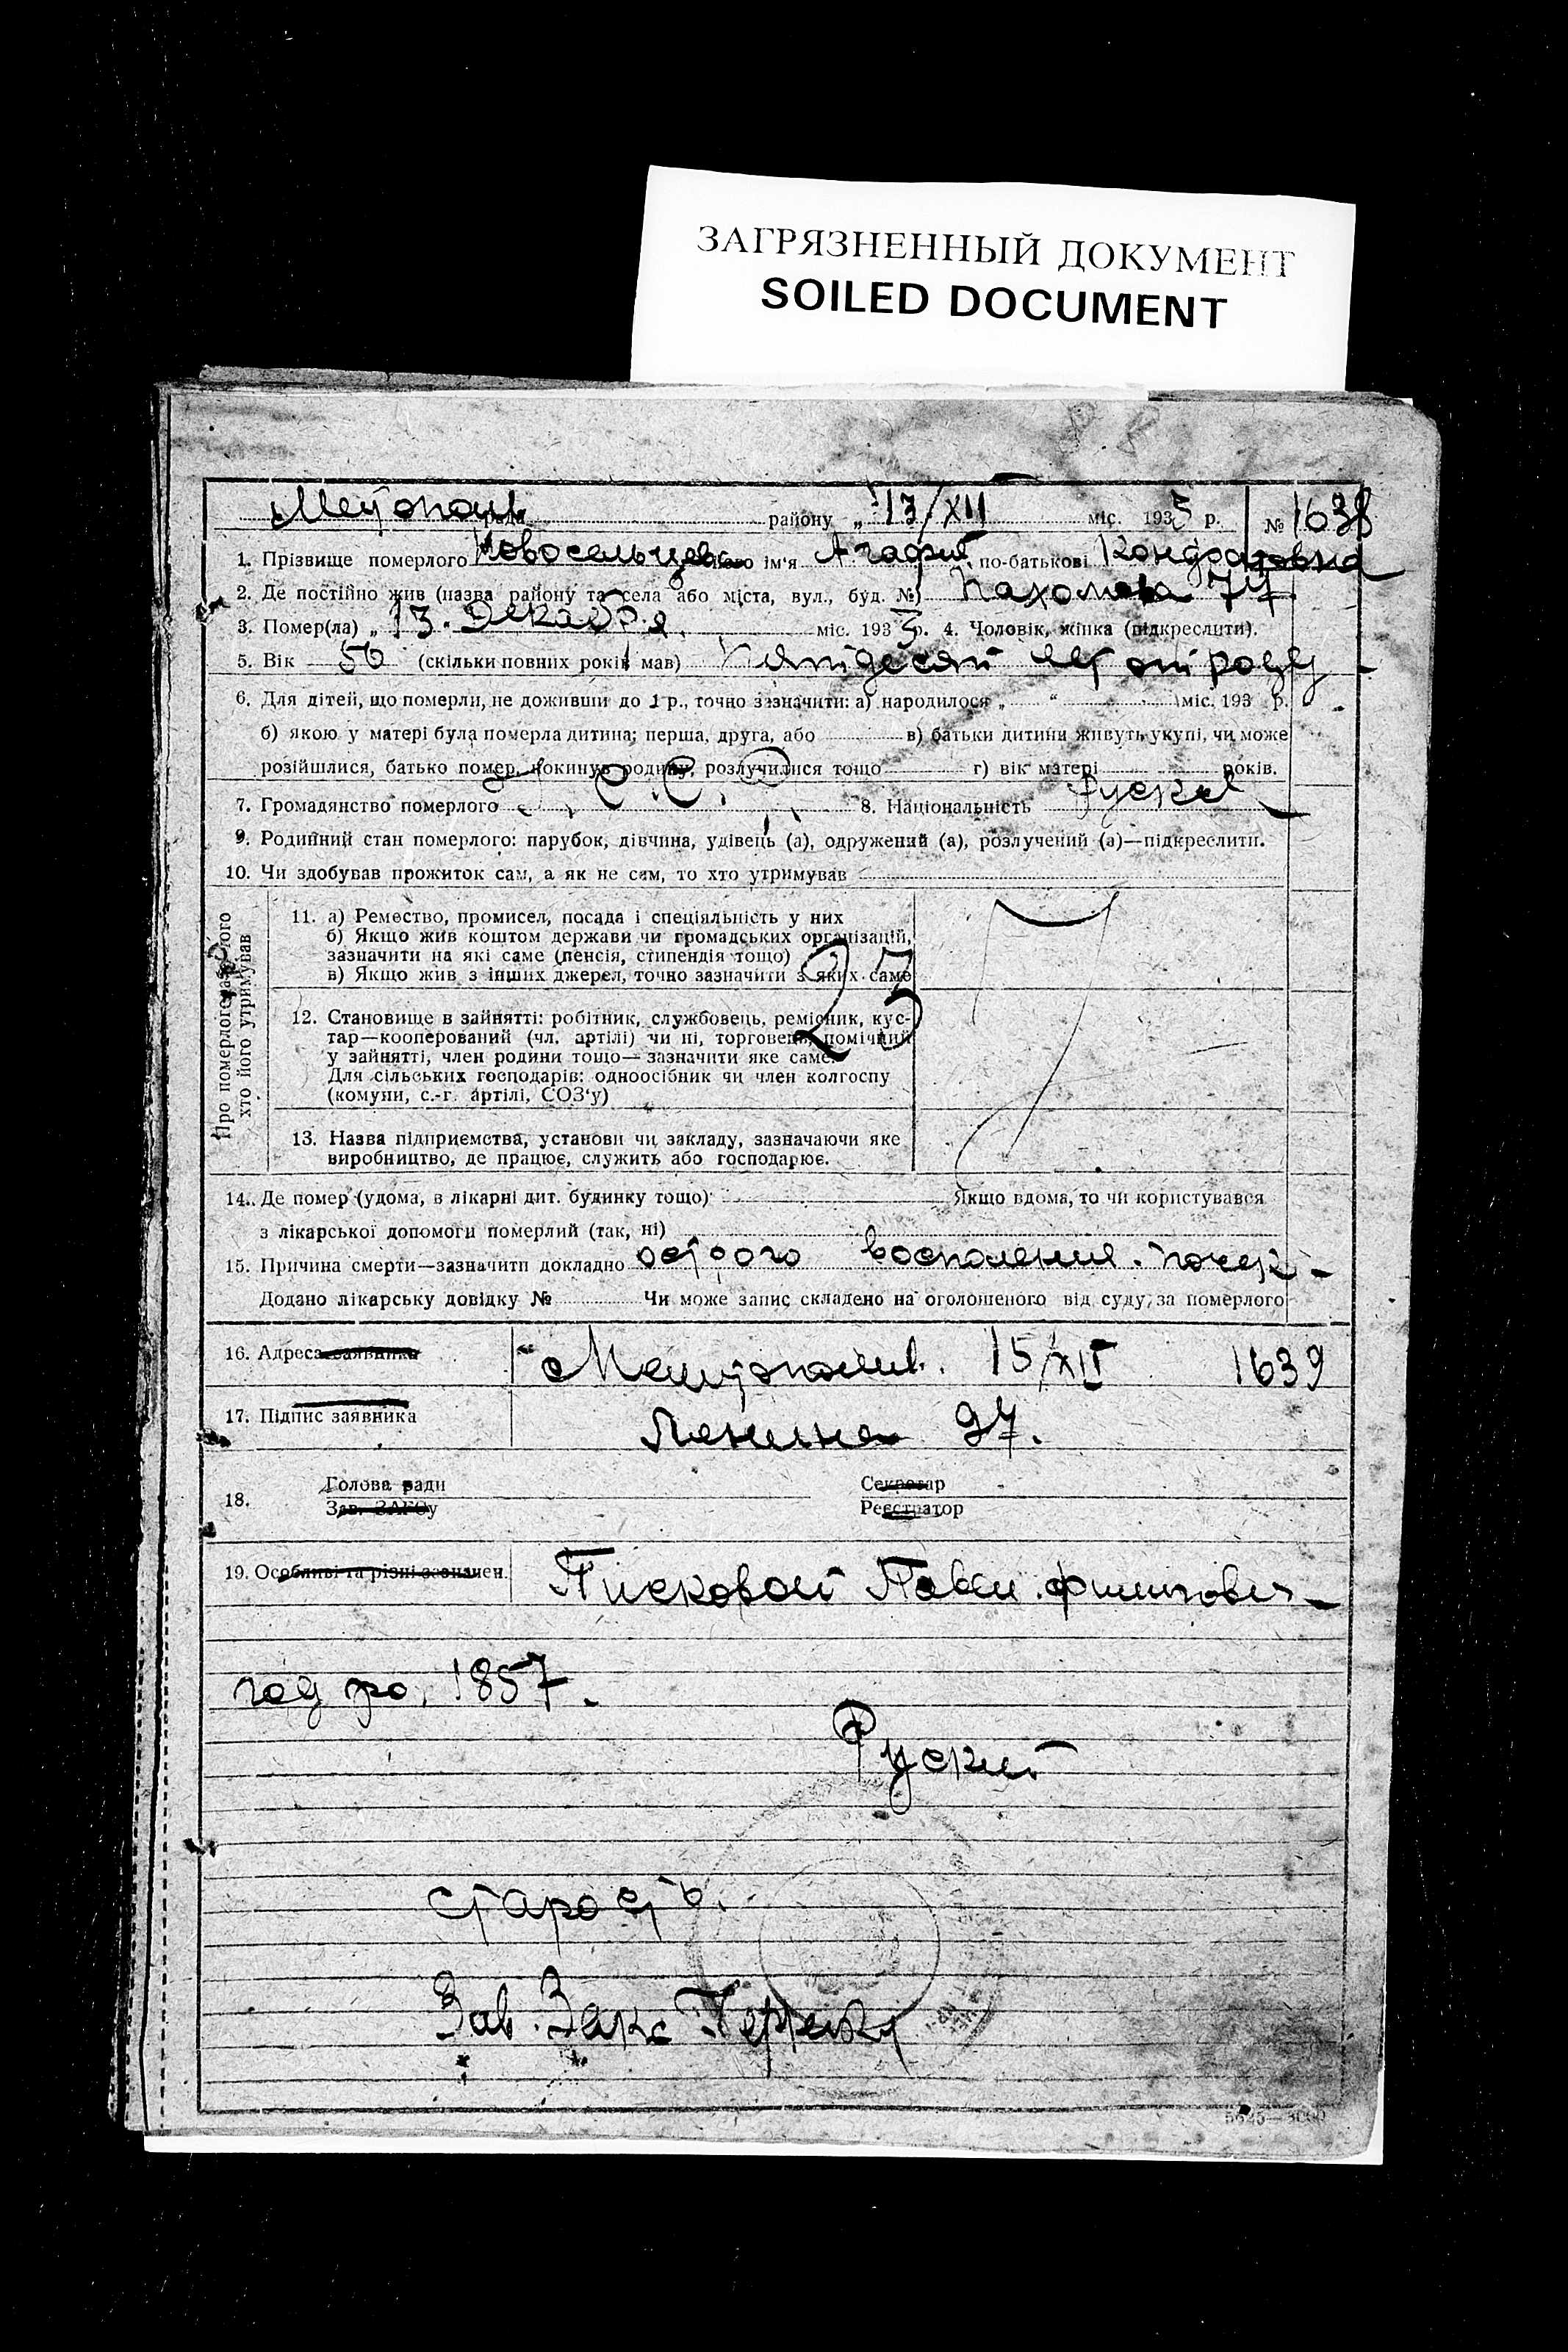 ЗАГРЯЗНЕННЫЙ ДОКУМЕНТ
SOILED DOCUMENT
рада району „ 13/XII міс. 1935 р. № 1638
1. Прізвище померлого Новосельцева його ім'я Агафия по-батькові Кондратовна
2. Де постійно жив (назва району та села або міста, вул., буд. №) Пахомова 77
3. Помер(ла) „ 13. Декабря. міс. 1935 р. 4. Чоловік, жінка (підкреслити).
5. Вік 50 (скільки повних років мав) лет от роду
6. Для дітей, що померли, не доживши до 1 р., точно зазначити: а) народилося „ “ міс. 193 р.
б) якою у матері була померла дитина; перша, друга, або в) батьки дитини живуть укупі, чи може
розійшлися, батько помер, покинув родину, розлучилися тощо г) вік матері років.
7. Громадянство померлого 8. Національність Руская
9. Родинний стан померлого: парубок, дівчина, удівець (а), одружений (а), розлучений (а)—підкреслити.
10. Чи здобував прожиток сам, а як не сам, то хто утримував
хто його утримував
11. а) Ремество, промисел, посада і спеціяльність у них
б) Якщо жив коштом держави чи громадських організацій,
зазначити на які саме (пенсія, стипендія тощо)
в) Якщо жив з інших джерел, точно зазначити з яких саме
23
12. Становище в зайнятті: робітник, службовець, ремісник, кус-
тар—кооперований (чл. артілі) чи ні, торговець, помічний
у зайнятті, член родини тощо—зазначити яке саме.
Для сільських господарів: одноосібник чи член колгоспу
(комуни, с.-г. артілі, СОЗ'у)
13. Назва підприємства, установи чи закладу, зазначаючи яке
виробництво, де працює, служить або господарює.
14. Де помер (удома, в лікарні дит. будинку тощо) Якщо вдома, то чи користувався
з лікарської допомоги померлий (так, ні)
15. Причина смерти—зазначити докладно острого восполения почек
Додано лікарську довідку № Чи може запис складено на оголошеного від суду за померлого
16. Адреса заявника 15/XII 1639
17. Підпис заявника Ленина 97.
18. Голова ради Секретар
Зав. ЗАГСу Реєстратор
19. Особливі та різні зазначен. Писковой Павел Филипович
год ро. 1857.
Руский
старость.
Зав. Загс